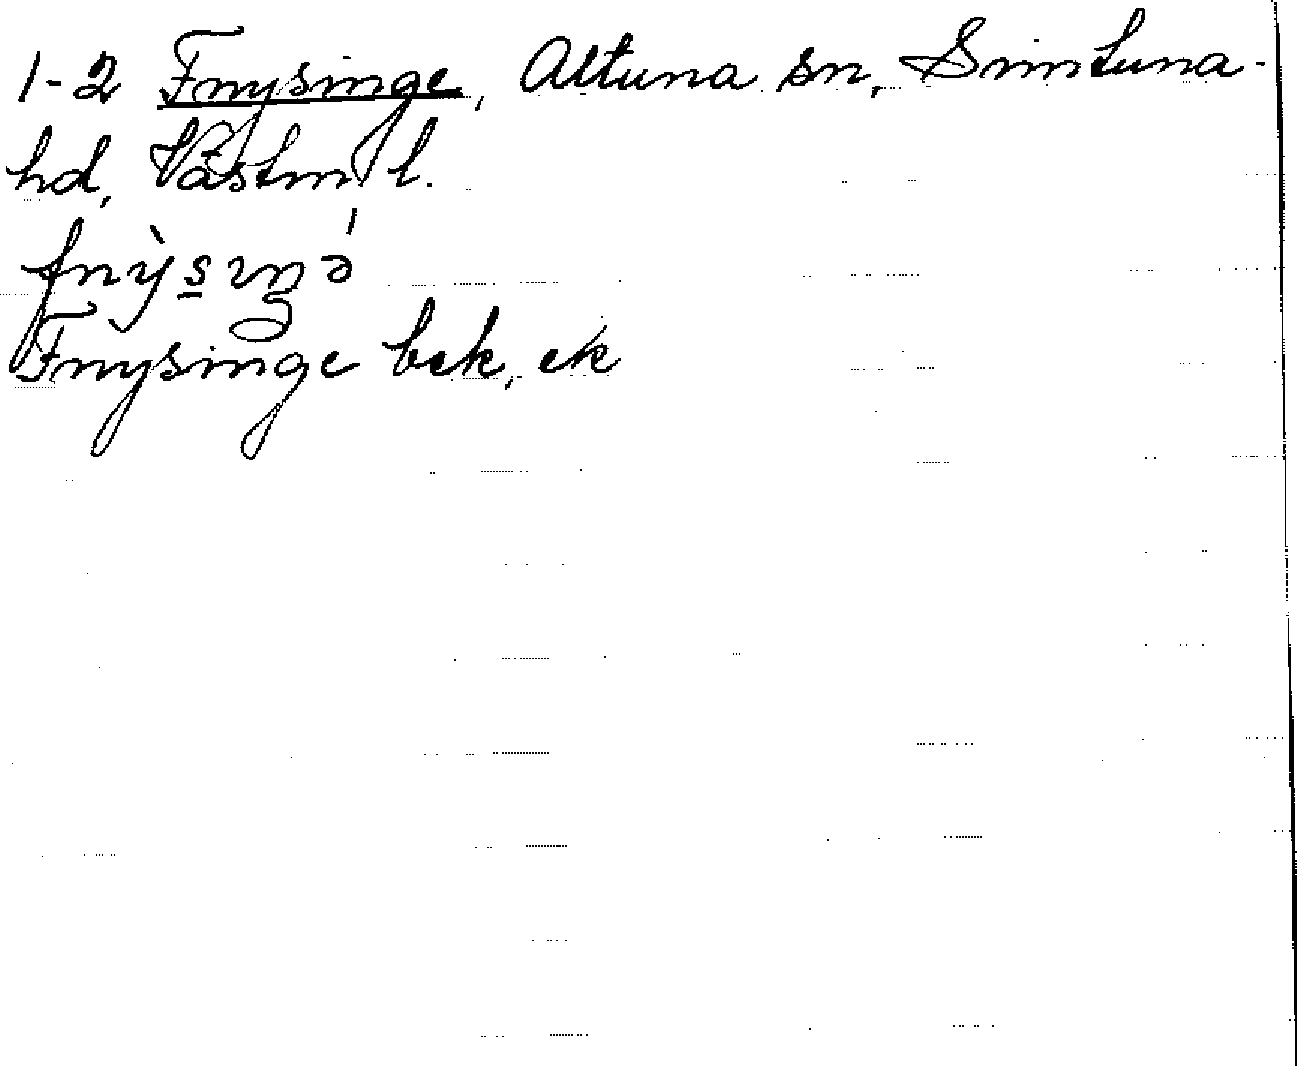 1-2 Fnysinge, Altuna sn, Simtuna-
hd, Västm l.
fnỳs̲ıŋə́
Fnysinge bek, ek